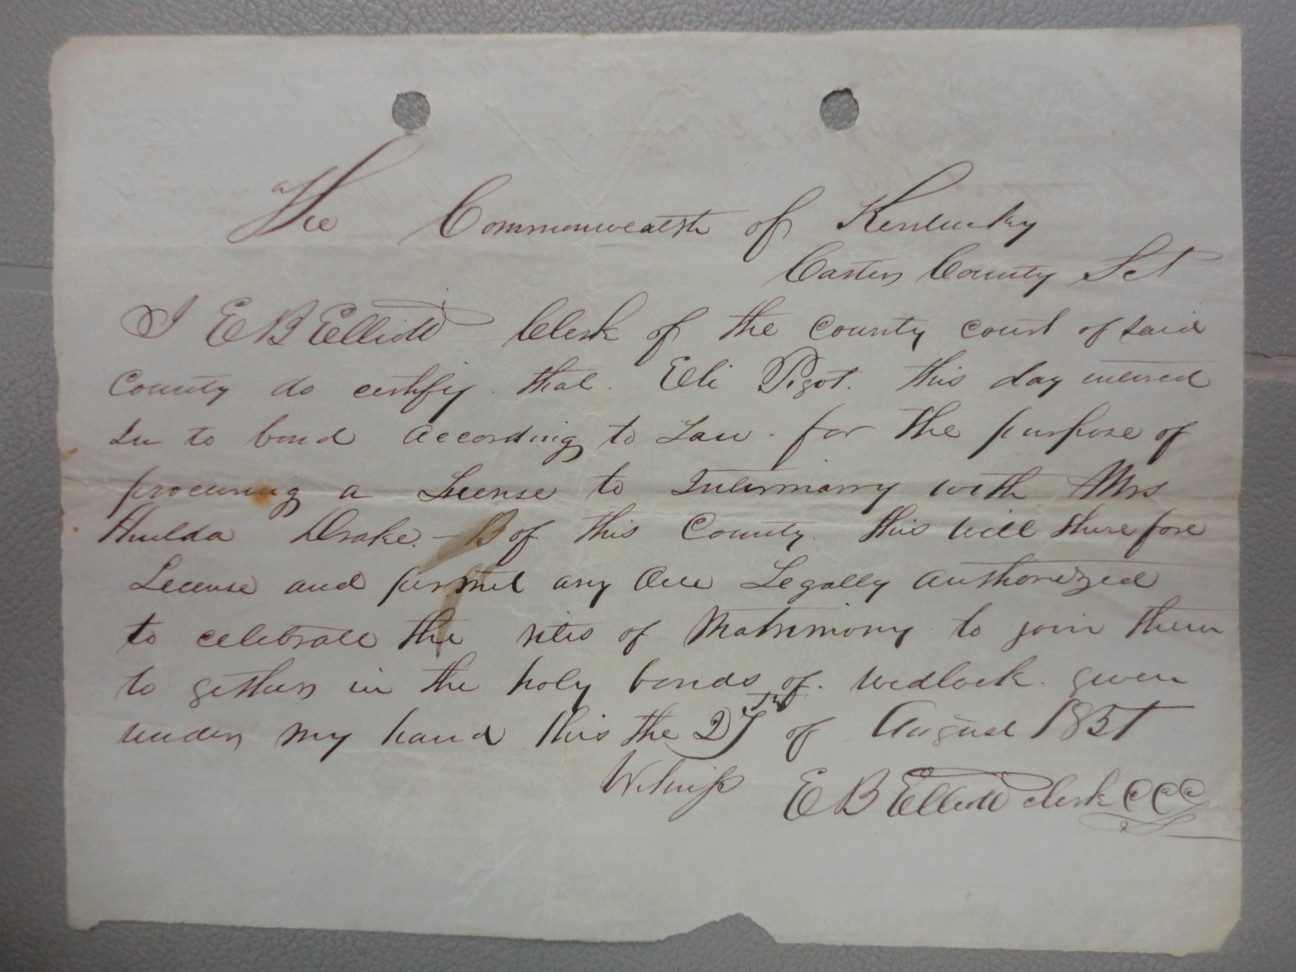 The Commonwealth of Kentucky
Carter County Sct
I E B Elliott Clerk of the county court of said
County do certify that Eli Pigot. this day entered
In to bond according to Law for the purpose of
procuring a License to Intermarry with Mrs
Hulda Drake. B of this County this will therefore
License and permit any One Legally authorized
to celebrate the rites of Matrimony to join them
to gether in the holy bonds of wedlock. given
under my hand this the of August 1851
Witness E B Elliott clerk CCC